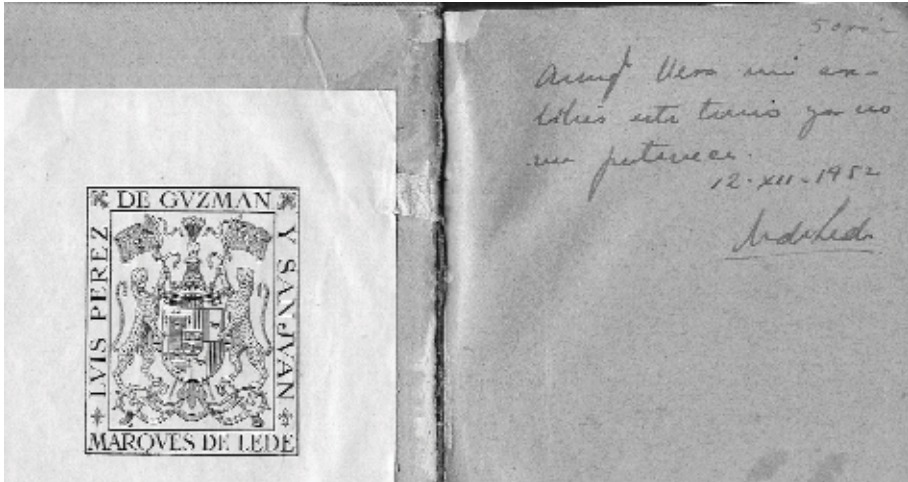 LVIS PEREZ
DE GVZMAN
Y SANJVAN
MARQVES DE LEDE
lleva mi ex-
libris este tomo ya no
me pertenece.
12-XII-1952